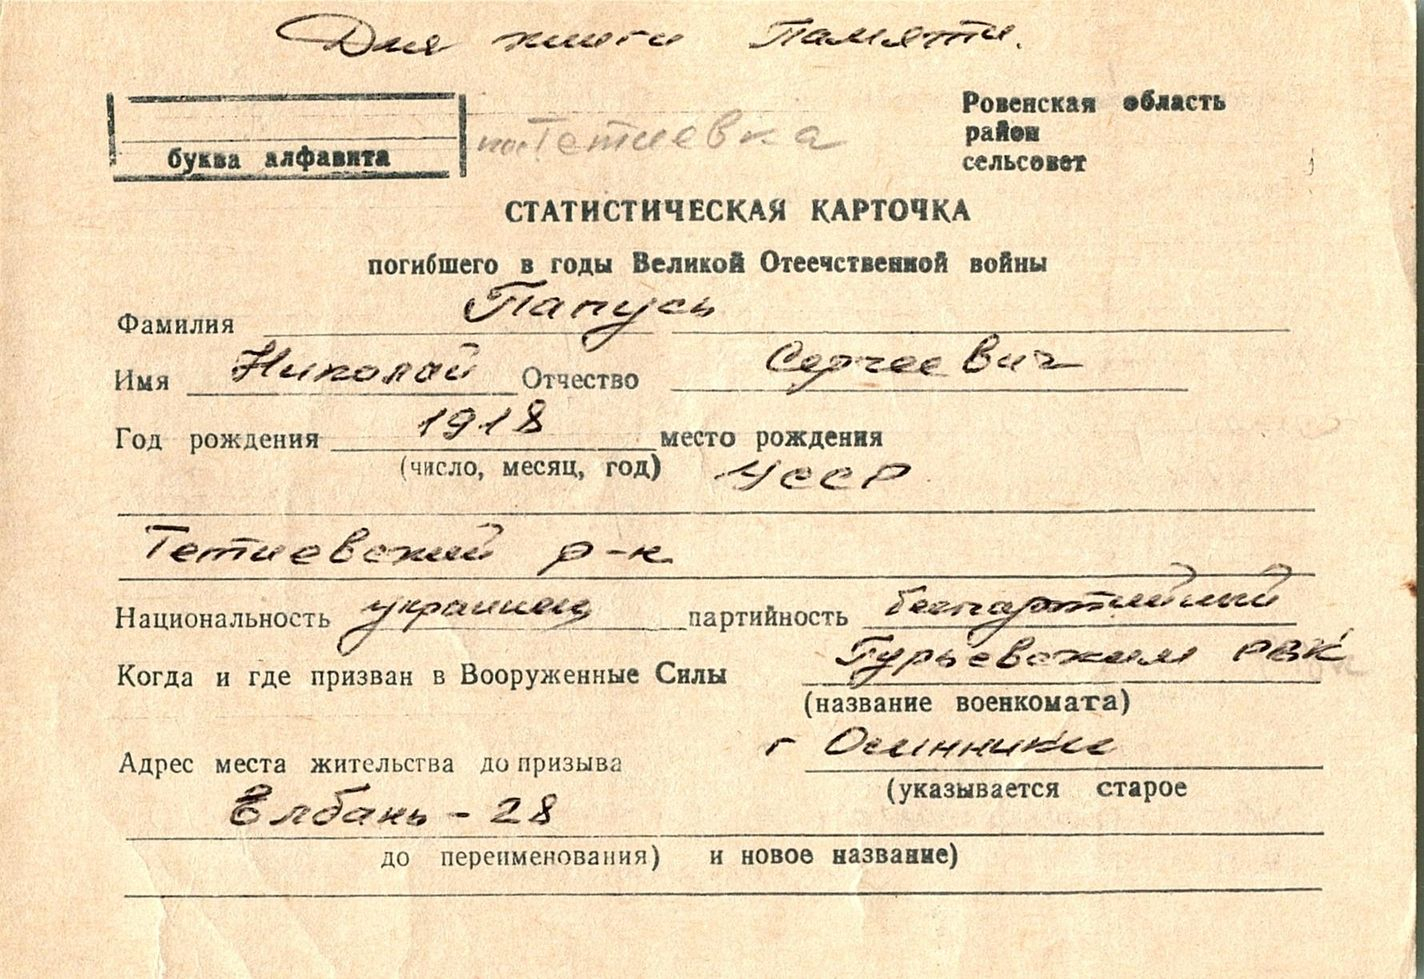 Для книги Памяти.
Ровенская область
Тетиевка
район
буква алфавита
сельсовет
СТАТИСТИЧЕСКАЯ КАРТОЧКА
погибшего в годы Великой Отеечственной войны
Фамилия Папусь
Имя Николай Отчество Сергеевич
Год рождения 1918 место рождения
(число, месяц, год) УССР
Тетиевский р-н
Национальность украинец партийность беспартийный
Когда и где призван в Вооруженные Силы Гурьевским РВК
(название военкомата)
Адрес места жительства до призыва г Осинники
(указывается старое
Елбань - 28
до переименования) и новое название)